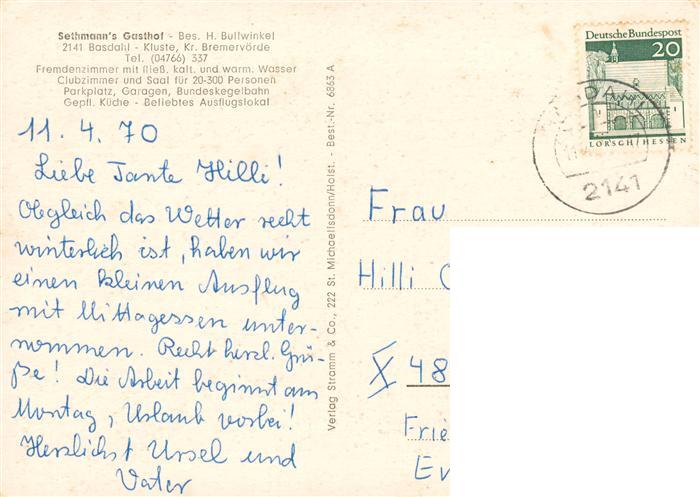 Sethmann's Gasthof - Bes. H. Bullwinkel
2141 Basdahl - Kluste, Kr. Bremervörde
Tel. (04766) 337
Fremdenzimmer mit fließ. kalt. und warm. Wasser
Clubzimmer und Saal für 20-300 Personen
Parkplatz, Garagen, Bundeskegelbahn
Gepfl. Küche - Beliebtes Ausflugslokal
11. 4. 70
Liebe Tante Hilli!
Obgleich das Wetter recht
winterlich ist, haben wir
einen kleinen Ausflug
mit Mittagessen unter-
nommen. Recht herzl. Grü-
ße! Die Arbeit beginnt am
Montag, Urlaub vorbei!
Herzlichst Ursel und
Vater
Verlag Stramm & Co., 222 St. Michaelisdonn/Holst. - Best.-Nr. 6863 A
Deutsche Bundespost
20
LORSCH/HESSEN
2141
Frau
Hilli
48